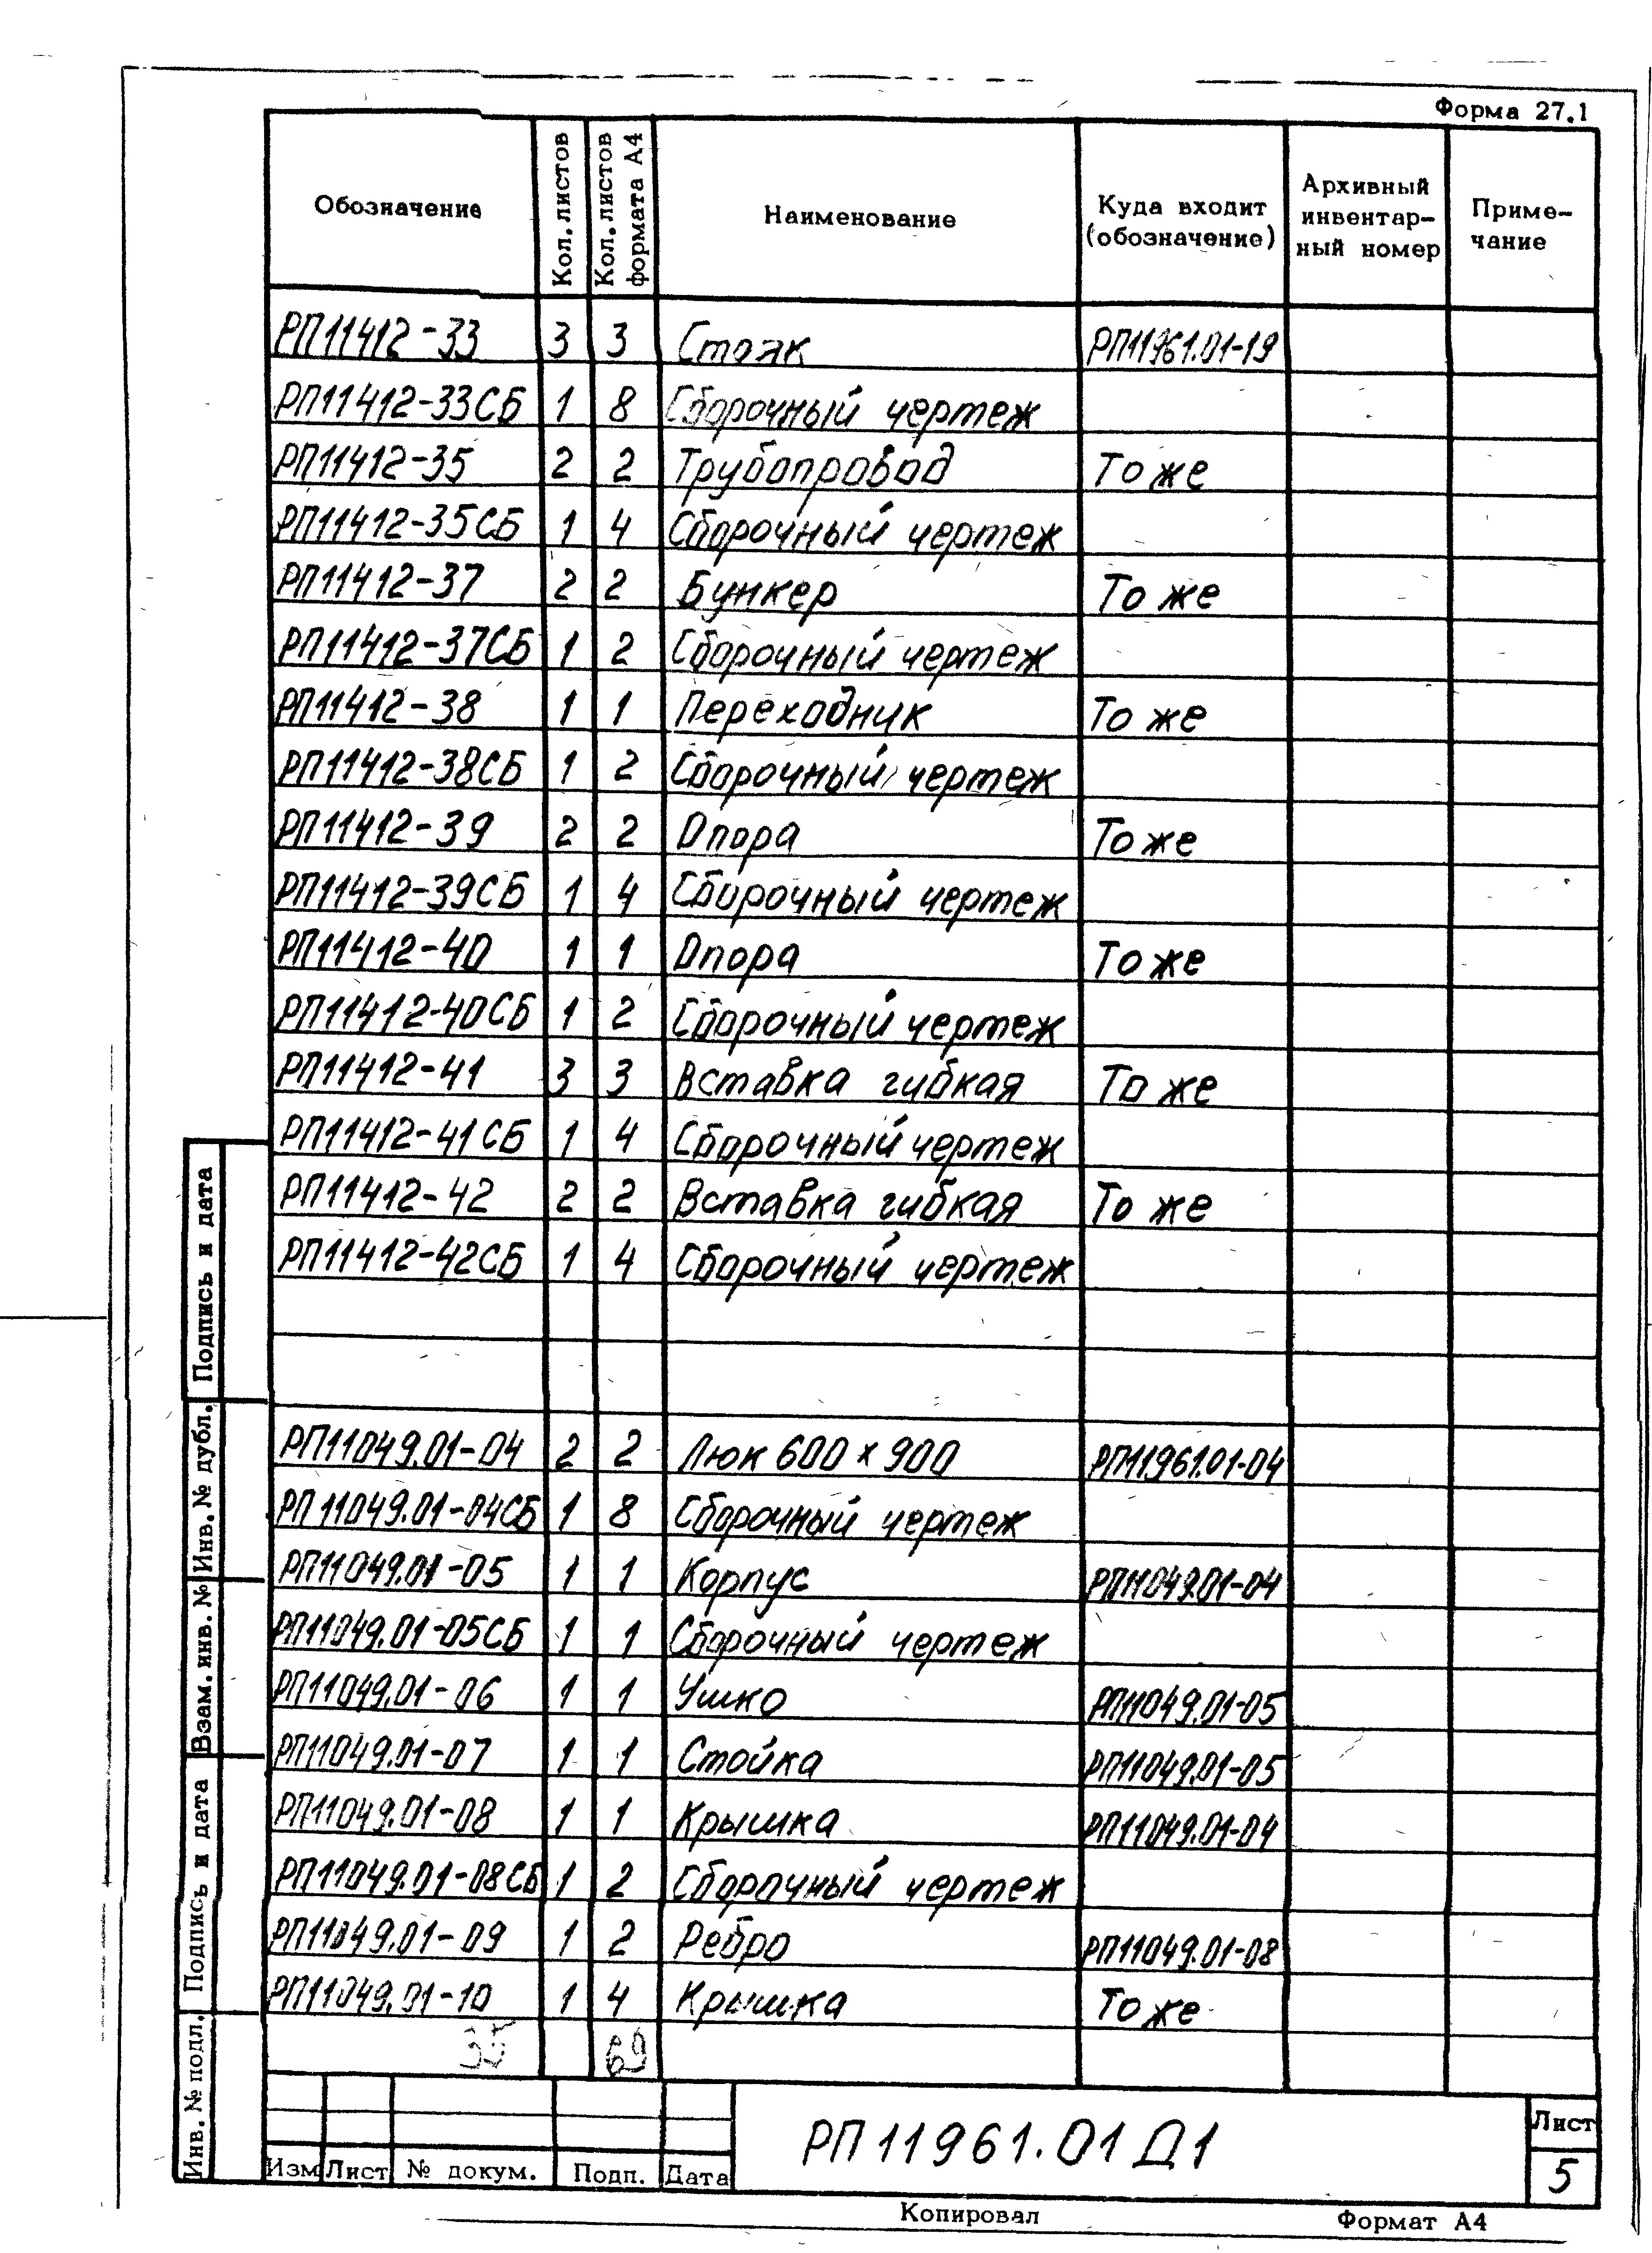 Форма 27.1
Обозначение Кол.листов Кол.листов формата А4 Наименование Куда входит (обозначение) Архивный инвентар-ный номер Приме-чание
РП11412-33 3 3 Стояк РП11961.01-19
РП11412-33СБ 1 8 Сборочный чертеж
РП11412-35 2 2 Трубопровод То же
РП11412-35СБ 1 4 Сборочный чертеж
РП11412-37 2 2 Бункер То же
РП11412-37СБ 1 2 Сборочный чертеж
РП11412-38 1 1 Переходник То же
РП11412-38СБ 1 2 Сборочный чертеж
РП11412-39 2 2 Опора То же
РП11412-39СБ 1 4 Сборочный чертеж
РП11412-40 1 1 Опора То же
РП11412-40СБ 1 2 Сборочный чертеж
РП11412-41 3 3 Вставка гибкая То же
РП11412-41СБ 1 4 Сборочный чертеж
РП11412-42 2 2 Вставка гибкая То же
РП11412-42СБ 1 4 Сборочный чертеж
РП11049.01-04 2 2 Люк 600 х 900 РП11961.01-04
РП11049.01-04СБ 1 8 Сборочный чертеж
РП11049.01-05 1 1 Корпус РП11049.01-04
РП11049.01-05СБ 1 1 Сборочный чертеж
РП11049.01-06 1 1 Ушко РП11049.01-05
РП11049.01-07 1 1 Стойка РП11049.01-05
РП11049.01-08 1 1 Крышка РП11049.01-04
РП11049.01-08СБ 1 2 Сборочный чертеж
РП11049.01-09 1 2 Ребро РП11049.01-08
РП11049.01-10 1 4 Крышка То же
69
Подпись и дата
Инв. № дубл.
Взам. инв. №
Подпись и дата
Инв. № подл.
Изм Лист № докум. Подп. Дата
РП11961.01Д1
Лист
5
Копировал Формат А4